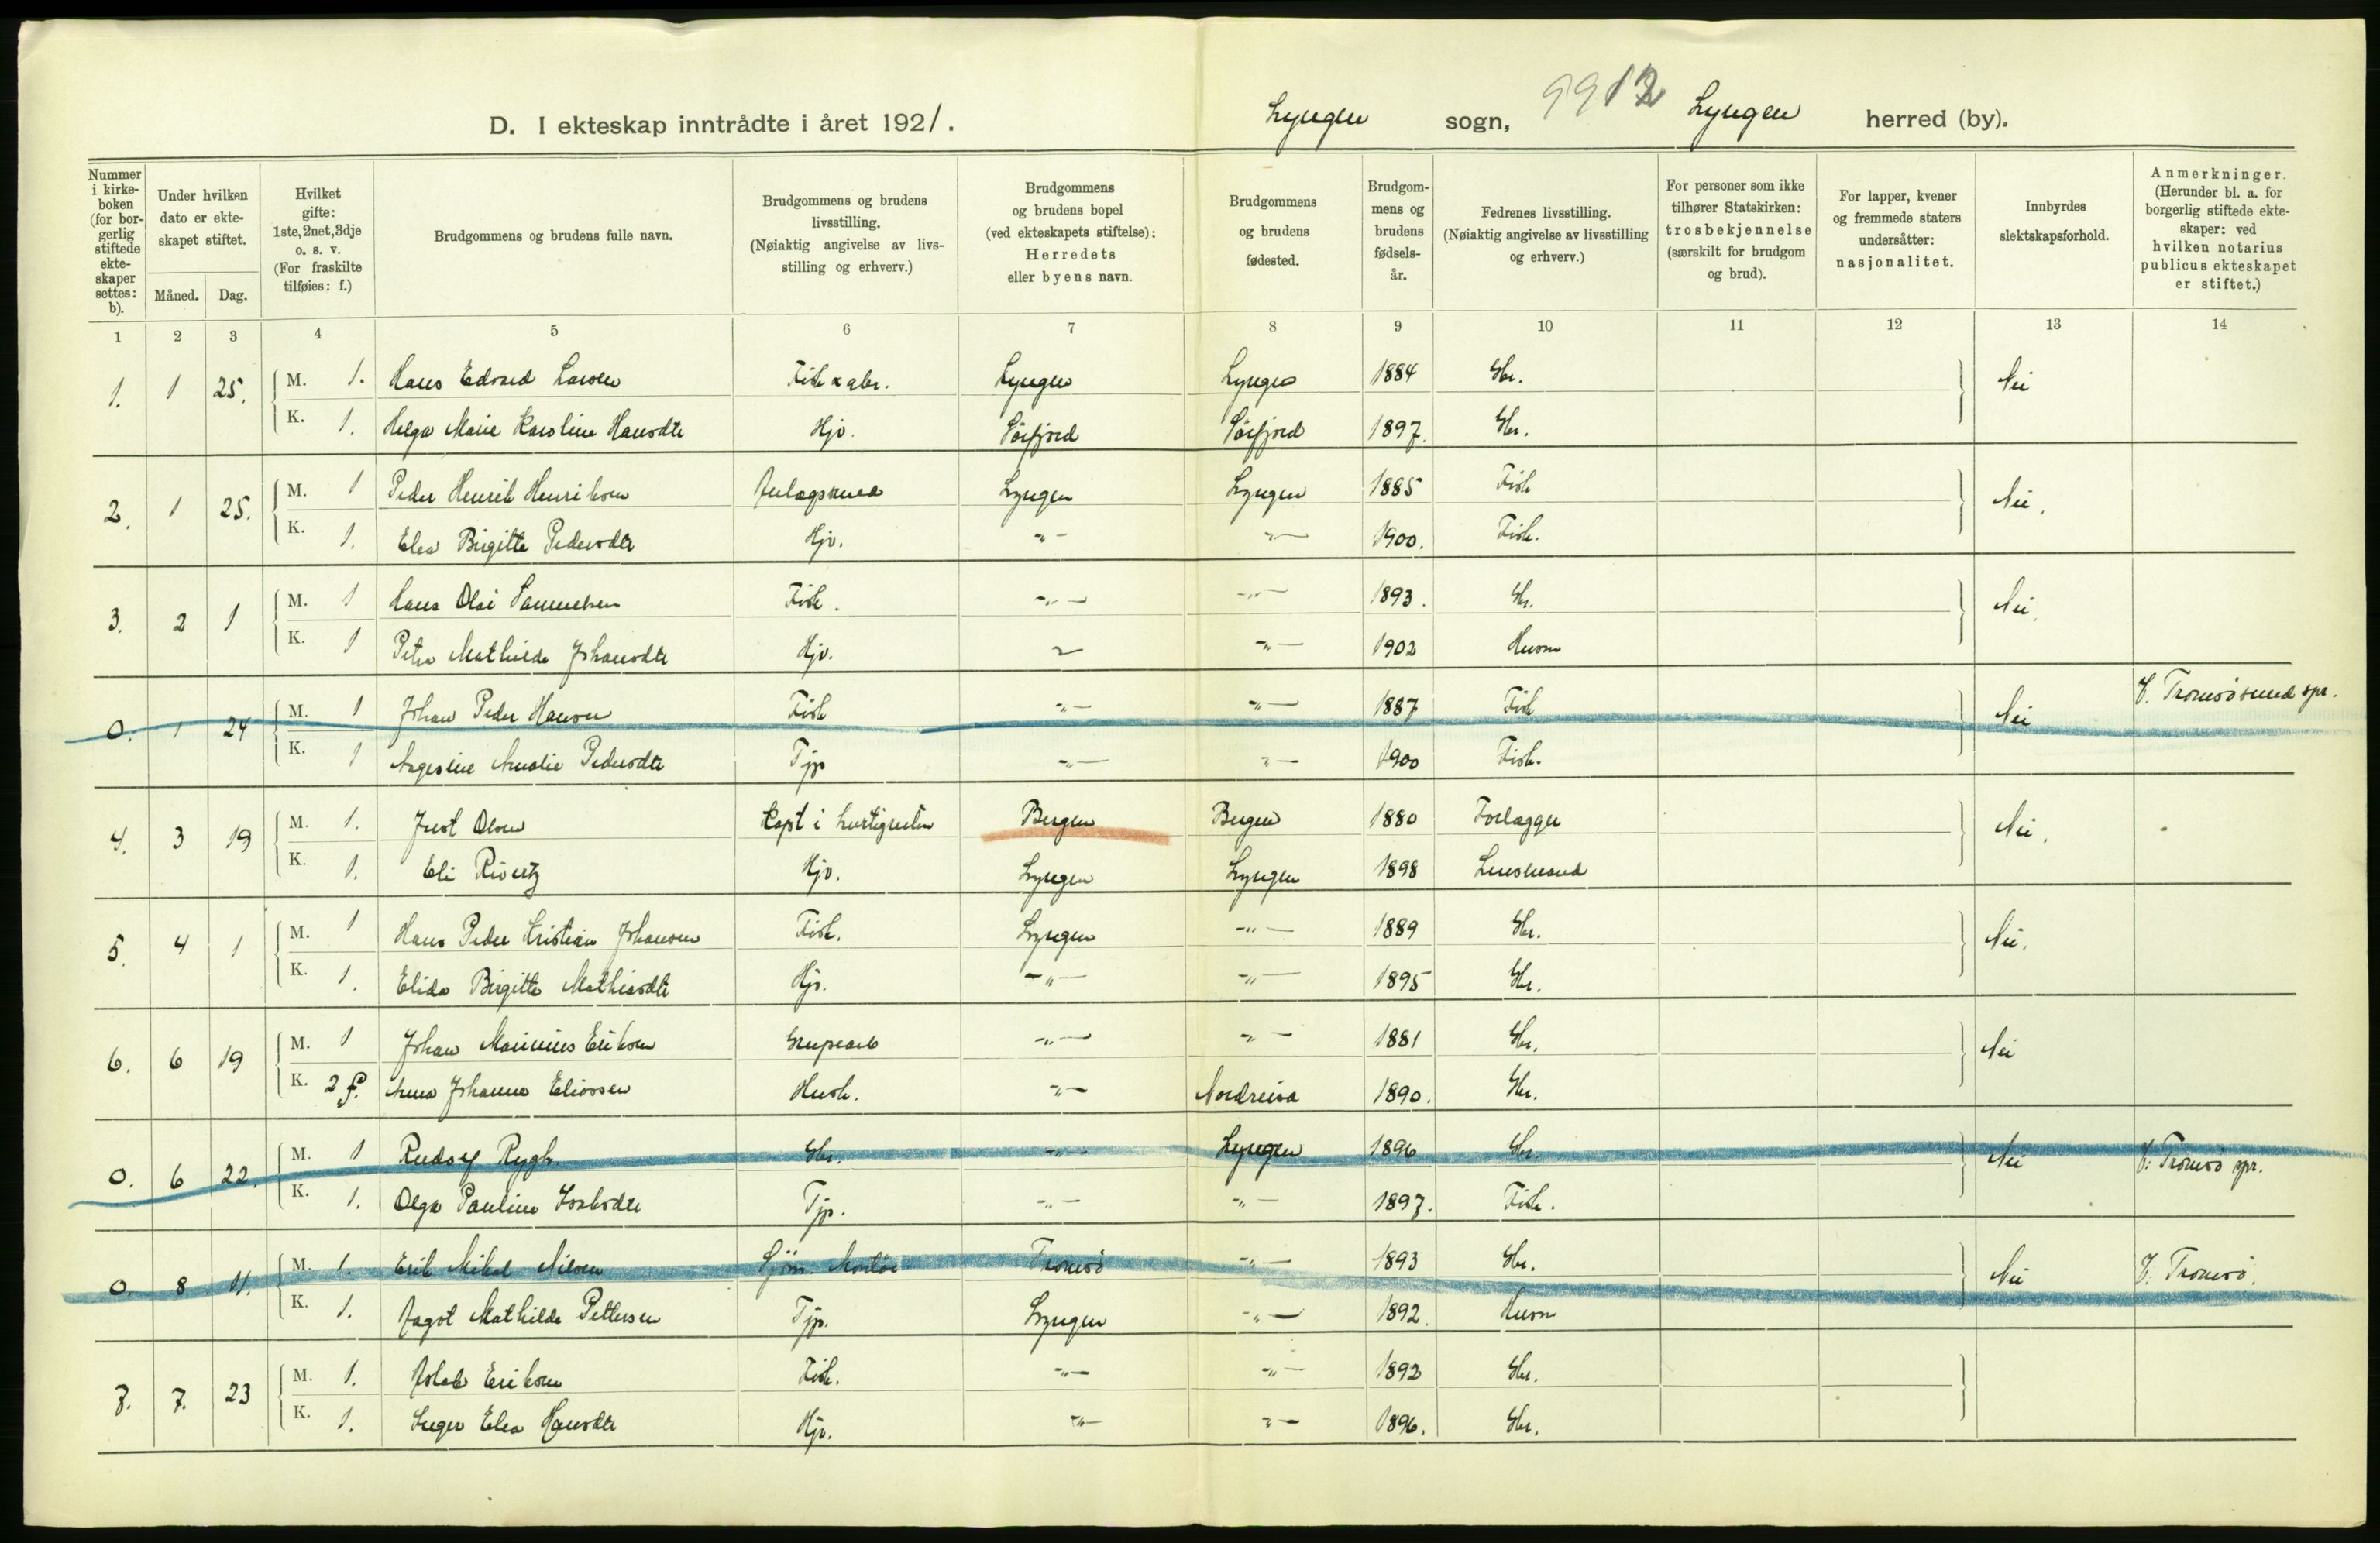 D. I ekteskap inntrådte i året 1921.
Lyngen sogn, 9912 Lyngen herred (by).
Nummer i kirke-boken (for bor-gerlig stiftede ekte-skaper settes: b).
Under hvilken dato er ekte-skapet stiftet.
Måned. Dag.
Hvilket gifte: 1ste, 2net, 3dje o. s. v. (For fraskilte tilføies: f.)
Brudgommens og brudens fulle navn.
Brudgommens og brudens livsstilling. (Nøiaktig angivelse av livs-stilling og erhverv.)
Brudgommens og brudens bopel (ved ekteskapets stiftelse): Herredets eller byens navn.
Brudgommens og brudens fødested.
Brudgom-mens og brudens fødsels-år.
Fedrenes livsstilling. (Nøiaktig angivelse av livsstilling og erhverv.)
For personer som ikke tilhører Statskirken: trosbekjennelse (særskilt for brudgom og brud).
For lapper, kvener og fremmede staters undersåtter: nasjonalitet.
Innbyrdes slektskapsforhold.
Anmerkninger. (Herunder bl. a. for borgerlig stiftede ekte-skaper: ved hvilken notarius publicus ekteskapet er stiftet.)
1 2 3 4 5 6 7 8 9 10 11 12 13 14
1. 1 25. M. 1. Hans Edvard Larsen Lyngen Lyngen 1884 Gbr. Nei
K. 1. Helga Marie Karoline Hansdtr Hjv. Sörfjord Sörfjord 1897. Gbr.
2. 1 25. M. 1 Peder Henrik Henriksen Lyngen Lyngen 1885 Fisk Nei.
K. 1. Elea Birgitte Pedersdtr Hjv. -"- -"- 1900. Fisk.
3. 2 1 M. 1 Hans Olai Samuelsen Fisk. -"- -"- 1893. Gbr. Nei.
K. 1 Petra Mathilde Johansdtr Hjv. -"- 1902 Husm
0. 1 24 M. 1 Johan Peder Hansen Fisk -"- -"- 1887 Fisk Nei V. Tromsösund spr.
K. 1 Angeline Amalie Pedersdtr Tjp -"- -"- 1900 Fisk.
4. 3 19 M. 1. Just Olsen Kapt i hurtigruten Bergen Bergen 1880 Forlegger Nei.
K. 1. Eli Rivertz Hjv. Lyngen Lyngen 1898 Lensmand
5. 4 1 M. 1 Hans Peder Kristian Johansen Fisk. Lyngen -"- 1889 Gbr. Nei.
K. 1. Elida Birgitte Mathisdtr Hjv. -"- -"- 1895 Gbr.
6. 6 19 M. 1 Johan Marinius Eriksen Grupearb -"- -"- 1881 Gbr. Nei
K. 2 f. Anna Johanna Eliassen Hush. -"- Nordreisa 1890. Gbr.
0. 6 22. M. 1 Rudolf Rygh Gbr. -"- Lyngen 1896 Gbr. Nei V. Tromsö spr.
K. 1. Olga Pauline Tjp. -"- -"- 1897. Fisk.
0. 8 11. M. 1. Erik Mikal Nilsen Tromsö -"- 1893 Gbr. Nei V. Tromsö.
K. 1. Dagot Mathilde Pettersen Tjp. Lyngen -"- 1892. Husm
7. 7. 23 M. 1. Eriksen Fisk. -"- -"- 1892 Gbr.
K. 1. Inger Elea Hansdtr Hjv. -"- -"- 1896. Gbr.